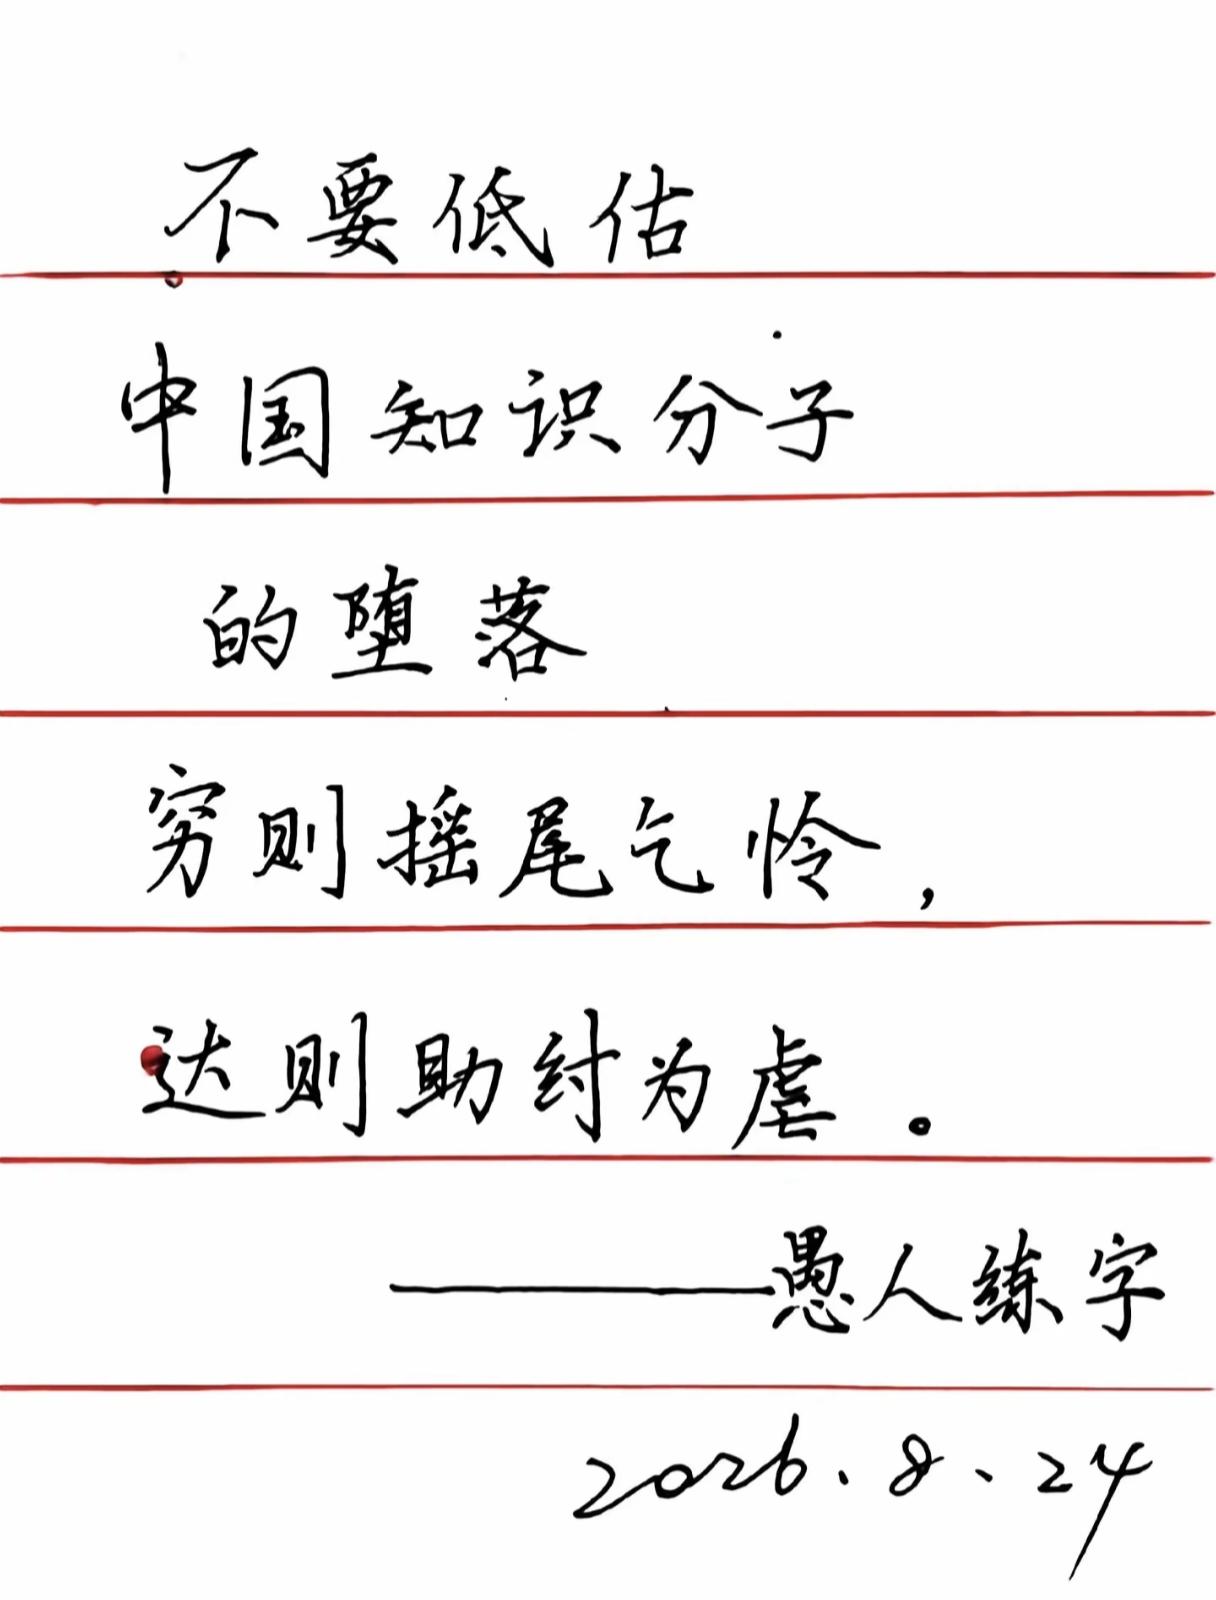 不要低估
中国知识分子
的堕落
穷则摇尾乞怜，
达则助纣为虐。
——愚人练字
2026.8.24